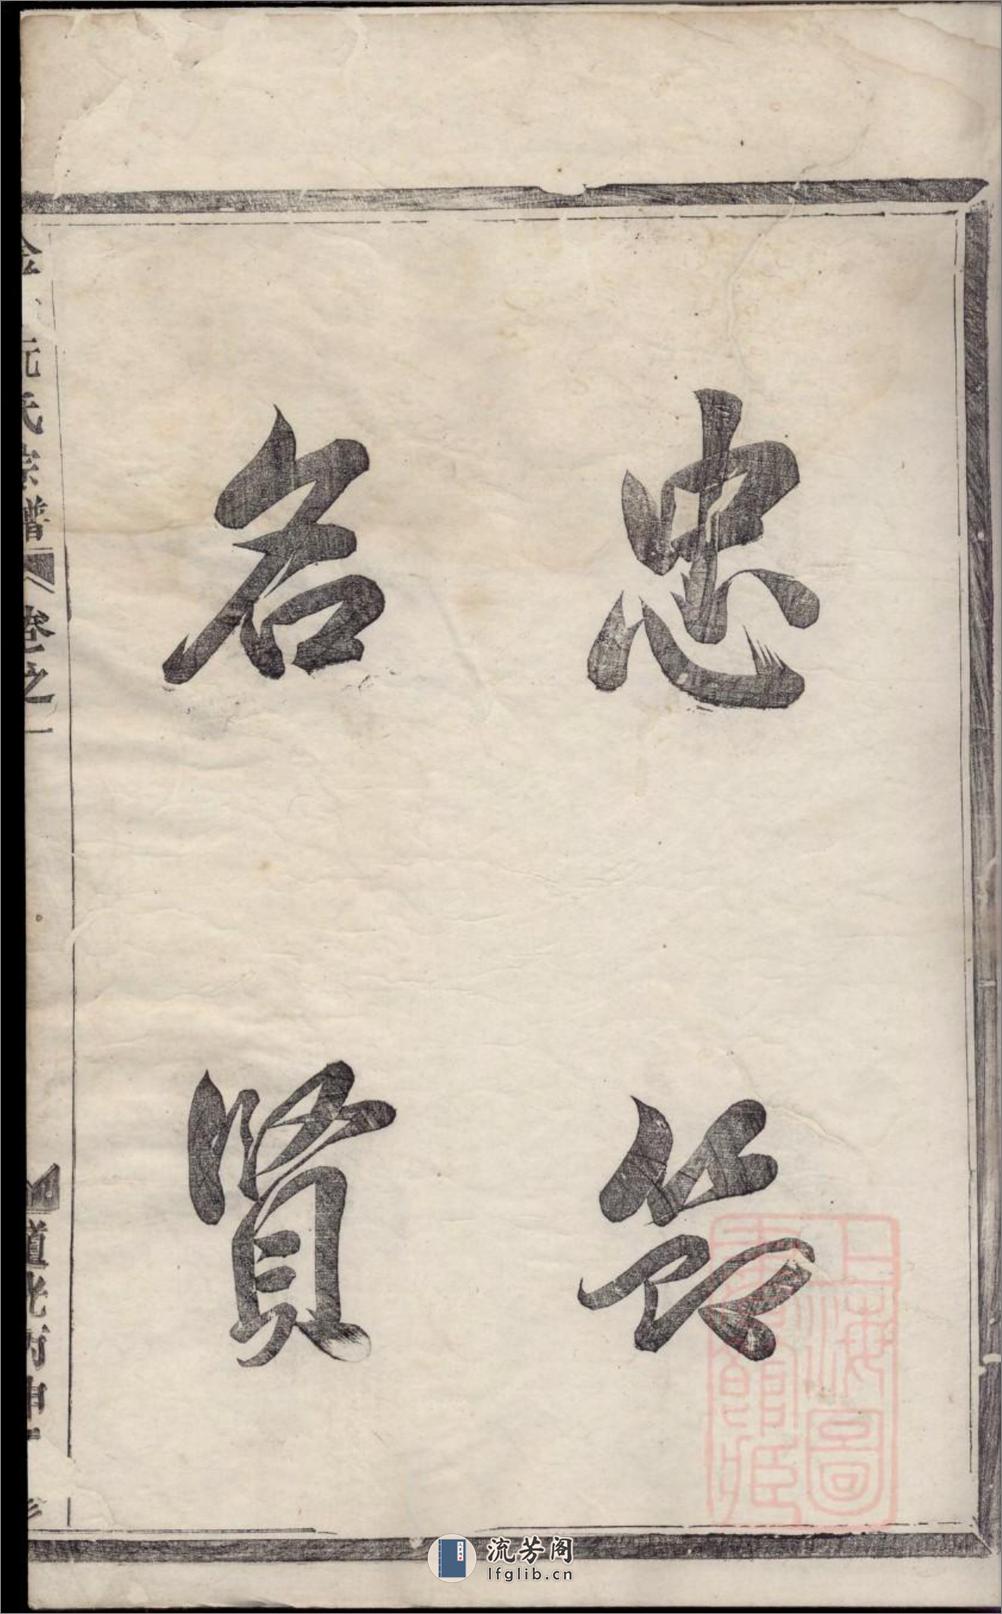 忠節
名賢
阮氏宗譜
卷之一
道光丙申
上海圖書館藏
流芳阁
lfglib.cn